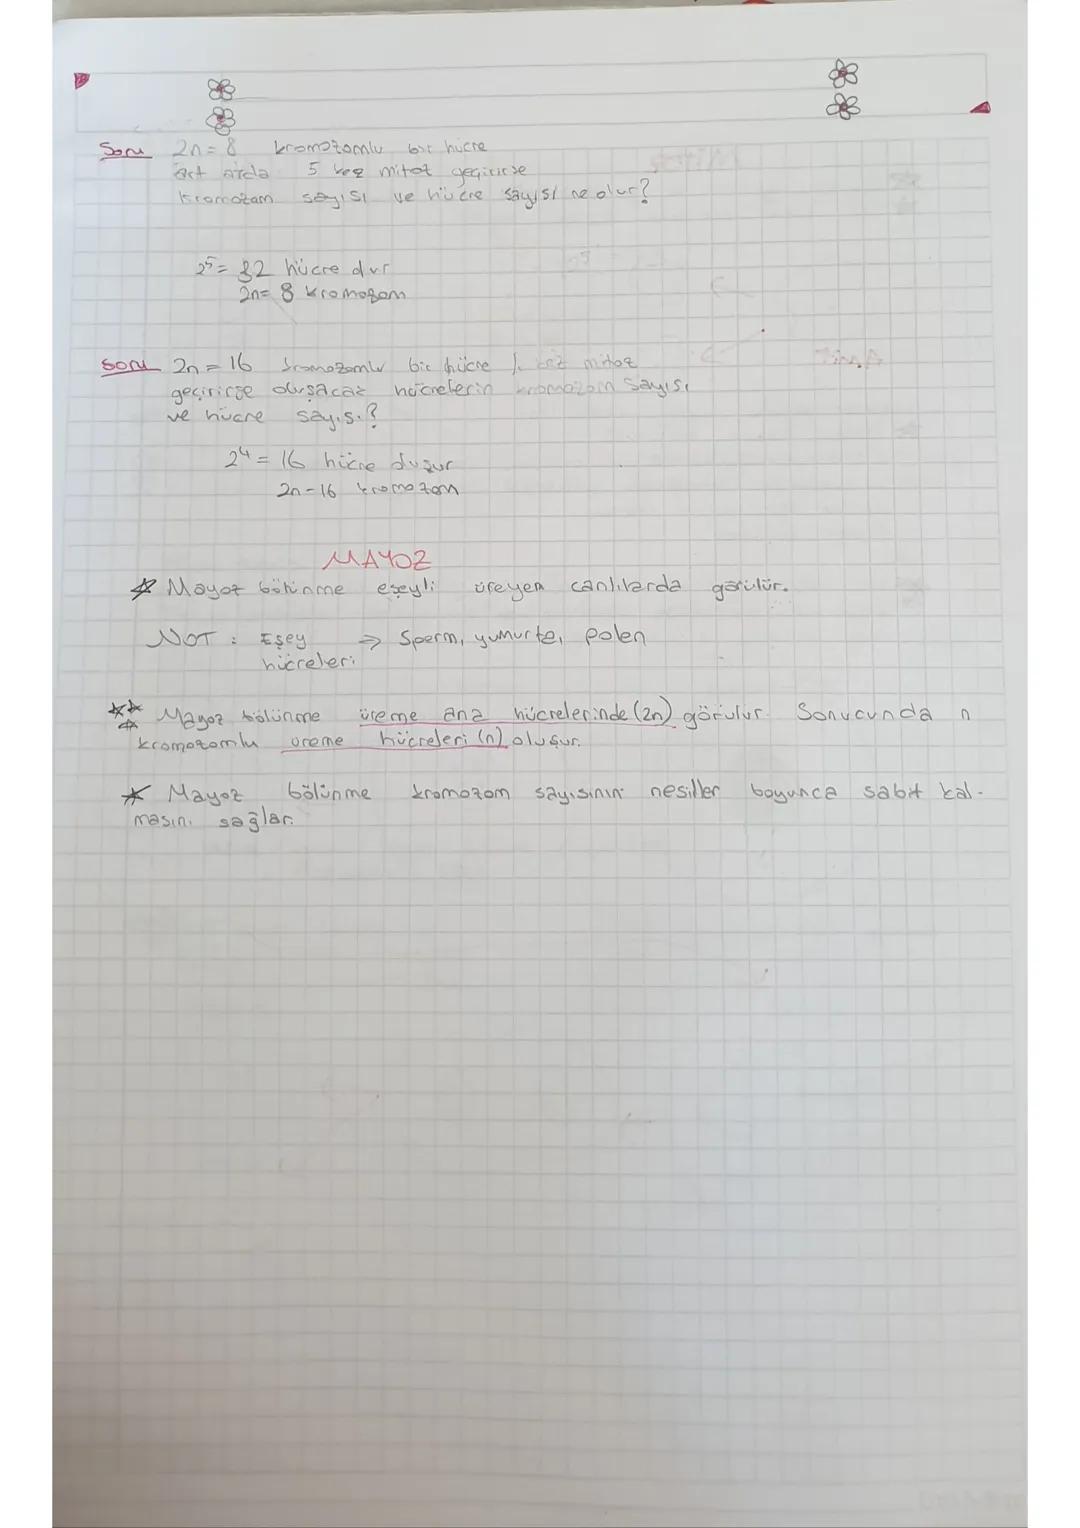 Soru 2n=8 kromozomlu bir hücre
art arda 5 kez mitoz geçirirse
Kromozom sayısı ve hücre sayısı ne olur?
2⁵= 32 hücre
2n= 8 kromozom
Soru 2n=16 kromozomlu bir hücre kez mitoz
geçirirse oluşacak hücrelerin kromozom sayısı
ve hücre sayısı?
2⁴= 16 hücre
2n-16 kromozom
MAYOZ
Mayoz bölünme eşeyli üreyen canlılarda görülür.
NOT : Eşey ⇒ Sperm, yumurta, polen
hücreleri
Mayoz bölünme üreme ana hücrelerinde (2n) görülür. Sonucunda n
kromozomlu üreme hücreleri (n) oluşur.
Mayoz bölünme kromozom sayısının nesiller boyunca sabit kal-
masını sağlar.